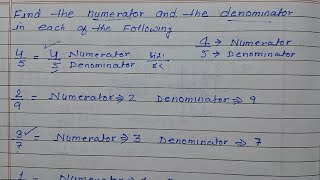 Find the numerator and the denominator
in each of the Following
4/5 = 4 Numerator
5 Denominator
4 → Numerator
5 → Denominator
2/9 = Numerator ⇒ 2 Denominator ⇒ 9
3/7 = Numerator ⇒ 3 Denominator ⇒ 7